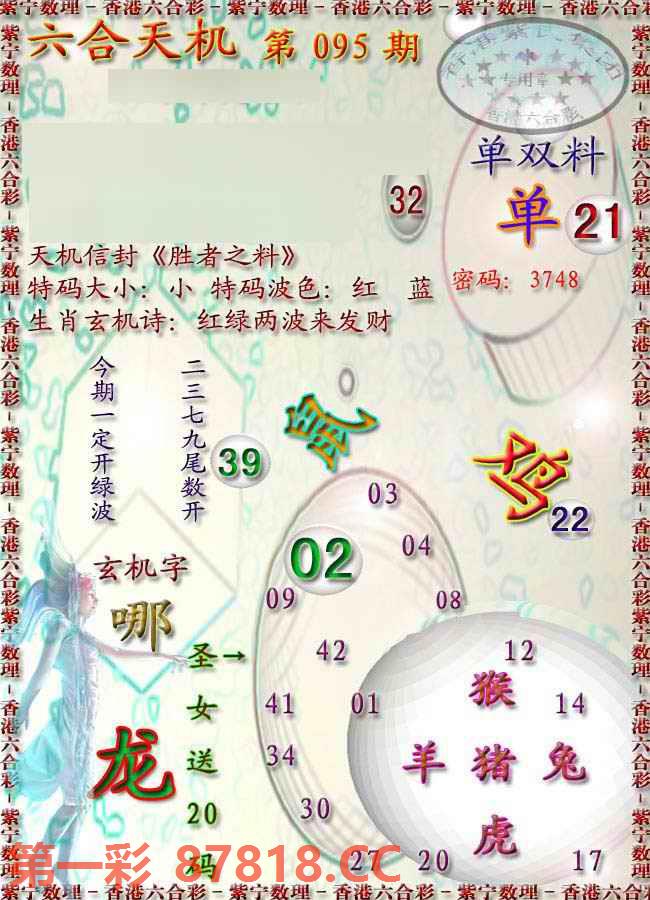 紫宁数理－香港六合彩－紫宁数理－香港六合彩－紫宁数理－香港六合彩
六合天机 第 095 期
专用章
香港六合彩
单双料
单 21
32
天机信封《胜者之料》
特码大小：小 特码波色：红 蓝
密码：3748
生肖玄机诗：红绿两波来发财
今期一定开绿波
二三七九尾数开
39
鼠
鸡
22
03
02
04
09
08
玄机字
哪
42
12
圣→
女
送
20
码
猴
41
01
14
龙
34
羊 猪 兔
30
虎
27
20
17
第一彩 87818.CC
紫宁数理－香港六合彩－紫宁数理－香港六合彩－紫宁数理－香港六合彩